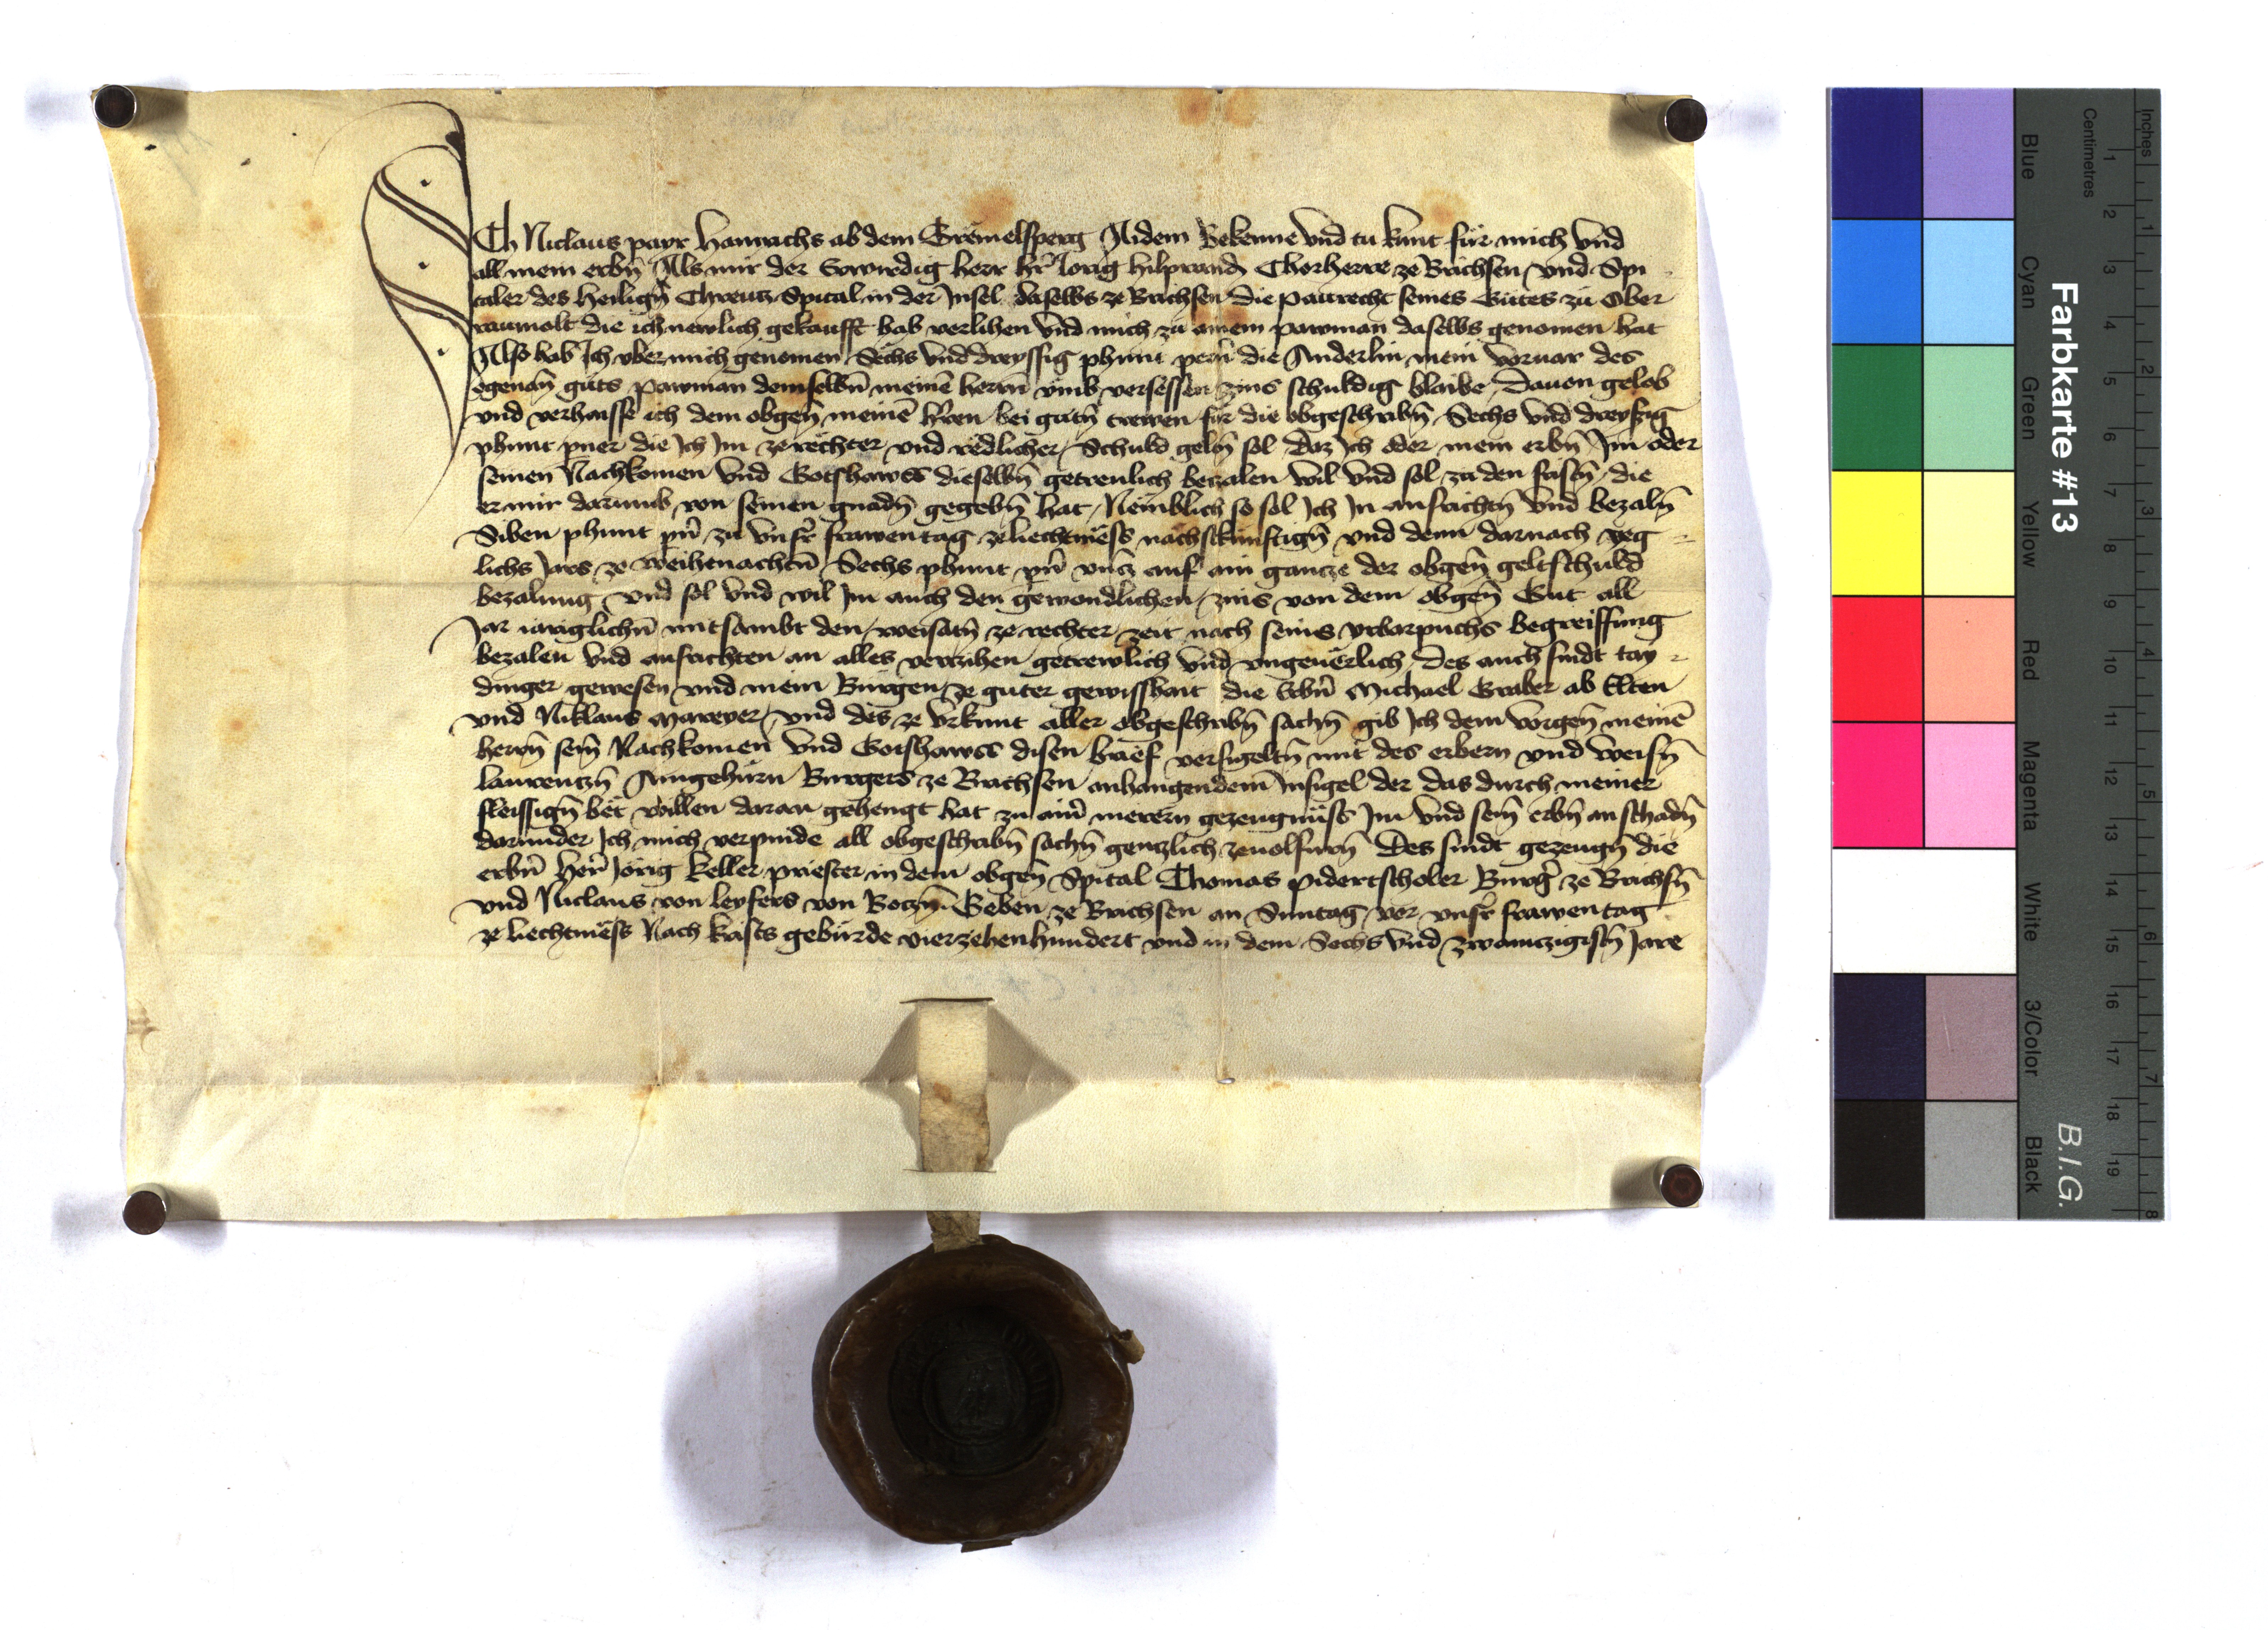 Ich Niclaus payr Hainreichs ab dem Gremelsperg Aidem Bekenne vnd tu kunt für mich vnd
all mein erbn̄ Als mir der Erwirdig herr hr̄ Jorig hilprand Chorherre ze Brichsen vnd Spi
taler des heilign̄ Chreutz Spital in der Jnsel daselbs ze Brichsen die paurecht seines Gutes zu Ober
raumolt die ich newlich gekaufft hab verlihen vnd mich zu ainem pawman daselbs genomen hat
Also hab Ich vber mich genomen Sechs vnd dreyssig phunt pern̄ die Anderlin mein voruar des
egenan̄ guts pawman demselbn̄ meinē herrn̄ vmb versessen zins schuldig blaibe, Dauon gelob
vnd verhaisse ich dem obgen̄ meinē hr̄ren bei gutn̄ trewen für die obgeschribn̄ Sechs vnd dreyssig
phunt pner die Ich Im ze rechter vnd redlicher Schuld geltn̄ sol Daz Ich oder mein erbn̄ Im oder
seinen Nachkomen vnd Gotshawss dieselbn̄ getreulich bezalen wil vnd sol zu den fristn̄, die
er mir darumb von seinen gnadn̄ gegebn̄ hat, Nemblich so sol Ich In ausrichtn̄ vnd bezaln̄
Siben phunt pn̄ zu vnsr̄ frawentag ze liechtmëss nachstkünftign̄ vnd denn darnach yeg
lichs Jars ze weihenachtn̄ Sechs phunt pn̄ vntz auf ain gantze der obgen̄ geltschuld
bezalung vnd sol vnd wil Im auch den gewondlichen zins von dem obgen̄ Gut all
Jar iäriglichn̄ mitsambt den weisatn̄ ze rechter zeit nach seins vrbarpuchs begreiffung
bezalen vnd ausrichten an alles verzihen getrewlich vnd vngeuërlich, Des auch sindt tay
dinger gewesen vnd mein Bürgen ze guter gewisshait die erbn̄ Michael Graber ab Elten
vnd Niklaus Mareyer, vnd des ze vrkunt aller obgeschribn̄ sachn̄ gib Ich dem vorgen̄ meinē
herrn̄ sein̄ Nachkomen vnd Gotshawss disen brief versigeltn̄ mit des erbern vnd weisn̄
laurentzn̄ Aingehürn Burgers ze Brichsen anhangendem Jnsigel der das durch meiner
fleissign̄ bet willen daran gehengt hat zu ain̄ merern gezeugnüss Im vnd sein̄ erbn̄ an schadn̄
darunder Ich mich verpinde all obgeschribn̄ sachn̄ gentzlich zeuolfurn̄ Des sindt gezeugn̄ die
erbn̄ her̄ Jörig keller priester in dem obgen̄ Spital Thomas pidertscholer Burgr̄ ze Brichsn̄
vnd Niclaus von leyfers von Botzn̄. Geben ze Brichsen an Suntag vor vnsr̄ frawentag
ze liechtmëss Nach krists gebürde vierzehenhundert vnd in dem Sechs vnd zwaintzigistn̄ Jare
Farbkarte #13
B.I.G.
Inches
Centimetres
1 2 3 4 5 6 7 8 9 10 11 12 13 14 15 16 17 18 19
1 2 3 4 5 6 7 8
Blue
Cyan
Green
Yellow
Red
Magenta
White
3/Color
Black